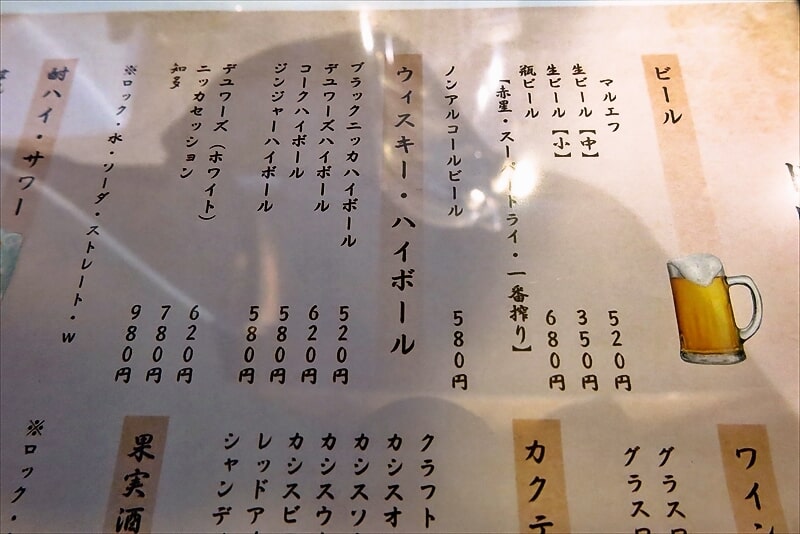 ビール
マルエフ
生ビール【中】 520円
生ビール【小】 350円
瓶ビール 680円
【赤星・スーパードライ・一番搾り】
ノンアルコールビール 580円
ウィスキー・ハイボール
ブラックニッカハイボール 520円
デュワーズハイボール 620円
コークハイボール 580円
ジンジャーハイボール 580円
デュワーズ（ホワイト） 620円
ニッカセッション 780円
知多 980円
※ロック・水・ソーダ・ストレート・w
酎ハイ・サワー
ワイン
グラス
グラス
カクテ
クラフト
カシスオ
カシスソ
カシスウ
カシスビ
レッドア
シャンデ
果実酒
※ロック・